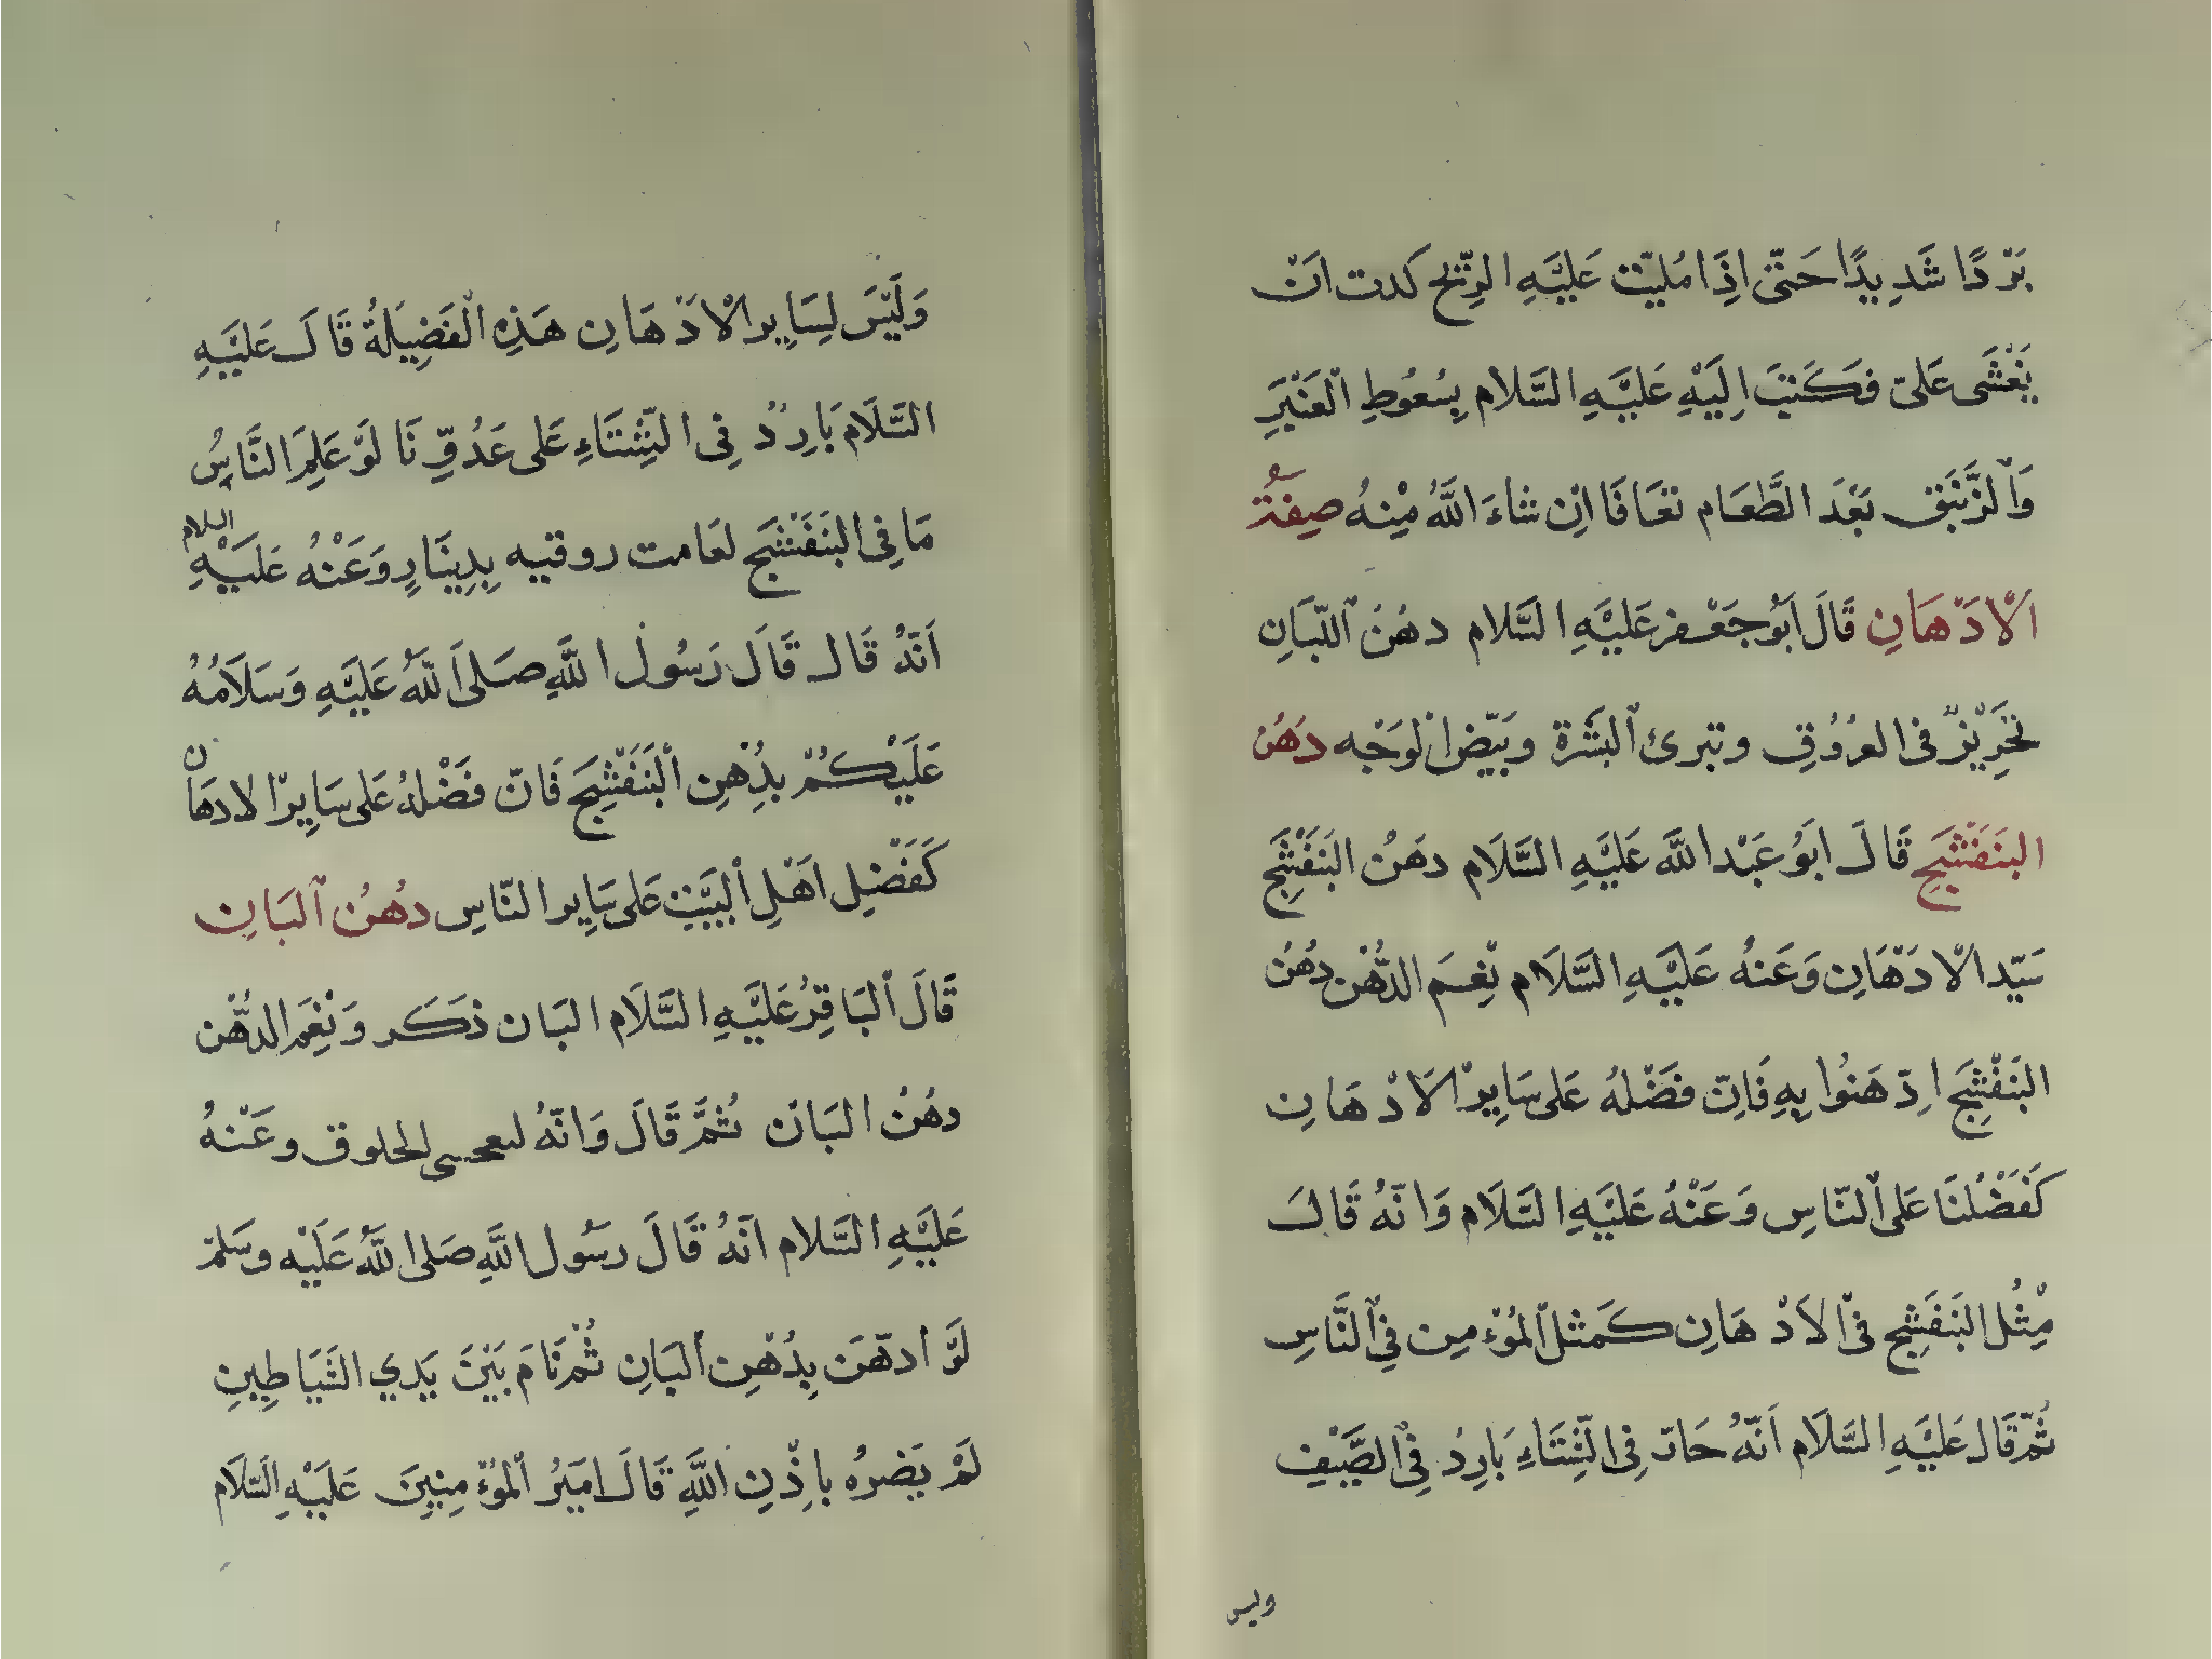 بَرْدًا شَدِيدًا حَتّى اِذَا مُليّت عَلَيْهِ الرِّيح كدت ان
يَغْشَى عَليّ فَكَتَبَ اِلَيْهِ عَلَيْهِ السَّلام بِسُعُوطِ الْعَنْبَرِ
وَالزَّنْبَق بَعْدَ الطَّعَام تعَافَا اِن شَاءَ اللّٰهُ مِنْهُ صِفَةُ
الْاَدْهَانِ قَالَ اَبُو جَعْفر عَلَيْهِ السَّلام دهْنُ اللّبَانِ
فى العرُوُقِ وتبرئ الْبَشَرَة وبَيّض الْوَجْه دَهْنُ
البنَفْشَجِ قَالَ ابَوُ عَبْد اللّه عَلَيْهِ السَّلَام دهَنُ البَنَفْشَجِ
سَيّد الْادَهَانِ وَعَنهُ عَلَيْهِ السَّلَام نِعِمَ الدُّهْن دُهْنُ
البَنَفْشِجَ ادّهَنُوا بِهِ فَاِنّ فَضْلهُ عَلى سَايِرْ الَادْهَانِ
كَفَضْلُنَا عَلى الْنّاسِ وَعَنْهُ عَلَيْهِ السَّلَام وَانّهُ قَالَ
مِثْلُ البَنَفْشِجِ فىْ الاَدْهَانِ كَمَثل الْمُؤْمِن فِىْ النَّاسِ
ثُمّ قَال عَلَيْهِ السَّلَام اَنّهُ حَارّ فِى الشِّتَاءِ بَارِدُ فِىْ الصَّيْفِ
وليس
وَلَيْسَ لِسَايِر الْادْهَانِ هَذِهِ الْفَضِيلَةُ قَالَ عَلَيْهِ
السَّلَام بَارِدُ فِى الشِّتَاءِ عَلى عَدُوِّنَا لَوْ عَلِمَ النَّاسُ
مَا فِى البَنَفْشَجِ لقَامت روقيه بِدِينَارِ وَعَنْهُ عَلَيْهِ السلام
اَنّهُ قَال قَالَ رَسُول اللَّهِ صَلى اَللّهُ عَلَيْهِ وَسَلَامُهُ
عَلَيْكُمْ بدُهْنِ الْبَنَفْشِجَ فَانّ فَضْلهُ عَلى سَايِرْ الادهَان
كَفَضْلِ اَهْلِ الْبَيْتِ عَلى سَايِر النّاسِ دُهْنُ الْبَانِ
قَالَ الْبَاقِرُ عَلَيْهِ السَّلَام البَان ذكَر وَنِعْمَ الدُّهْن
دهْنُ البَانْ ثُمَّ قَالَ وَانّهُ الخلوق وعَنْهُ
عَلَيْهِ السَّلام اَنّهُ قَالَ رسَول اللَّهِ صَلى اللَّهُ عَلَيْه وسَلمْ
لَوْ ادّهَن بِدُهْنِ الْبَانِ ثُمْ نَامَ بَيْنَ يَدي الشَيَاطِينِ
لَمْ يَضرهُ باِذْنِ اللَّهِ قَالَ امَيرُ الْمؤْمِنِينَ عَلَيْهِ السَّلَام